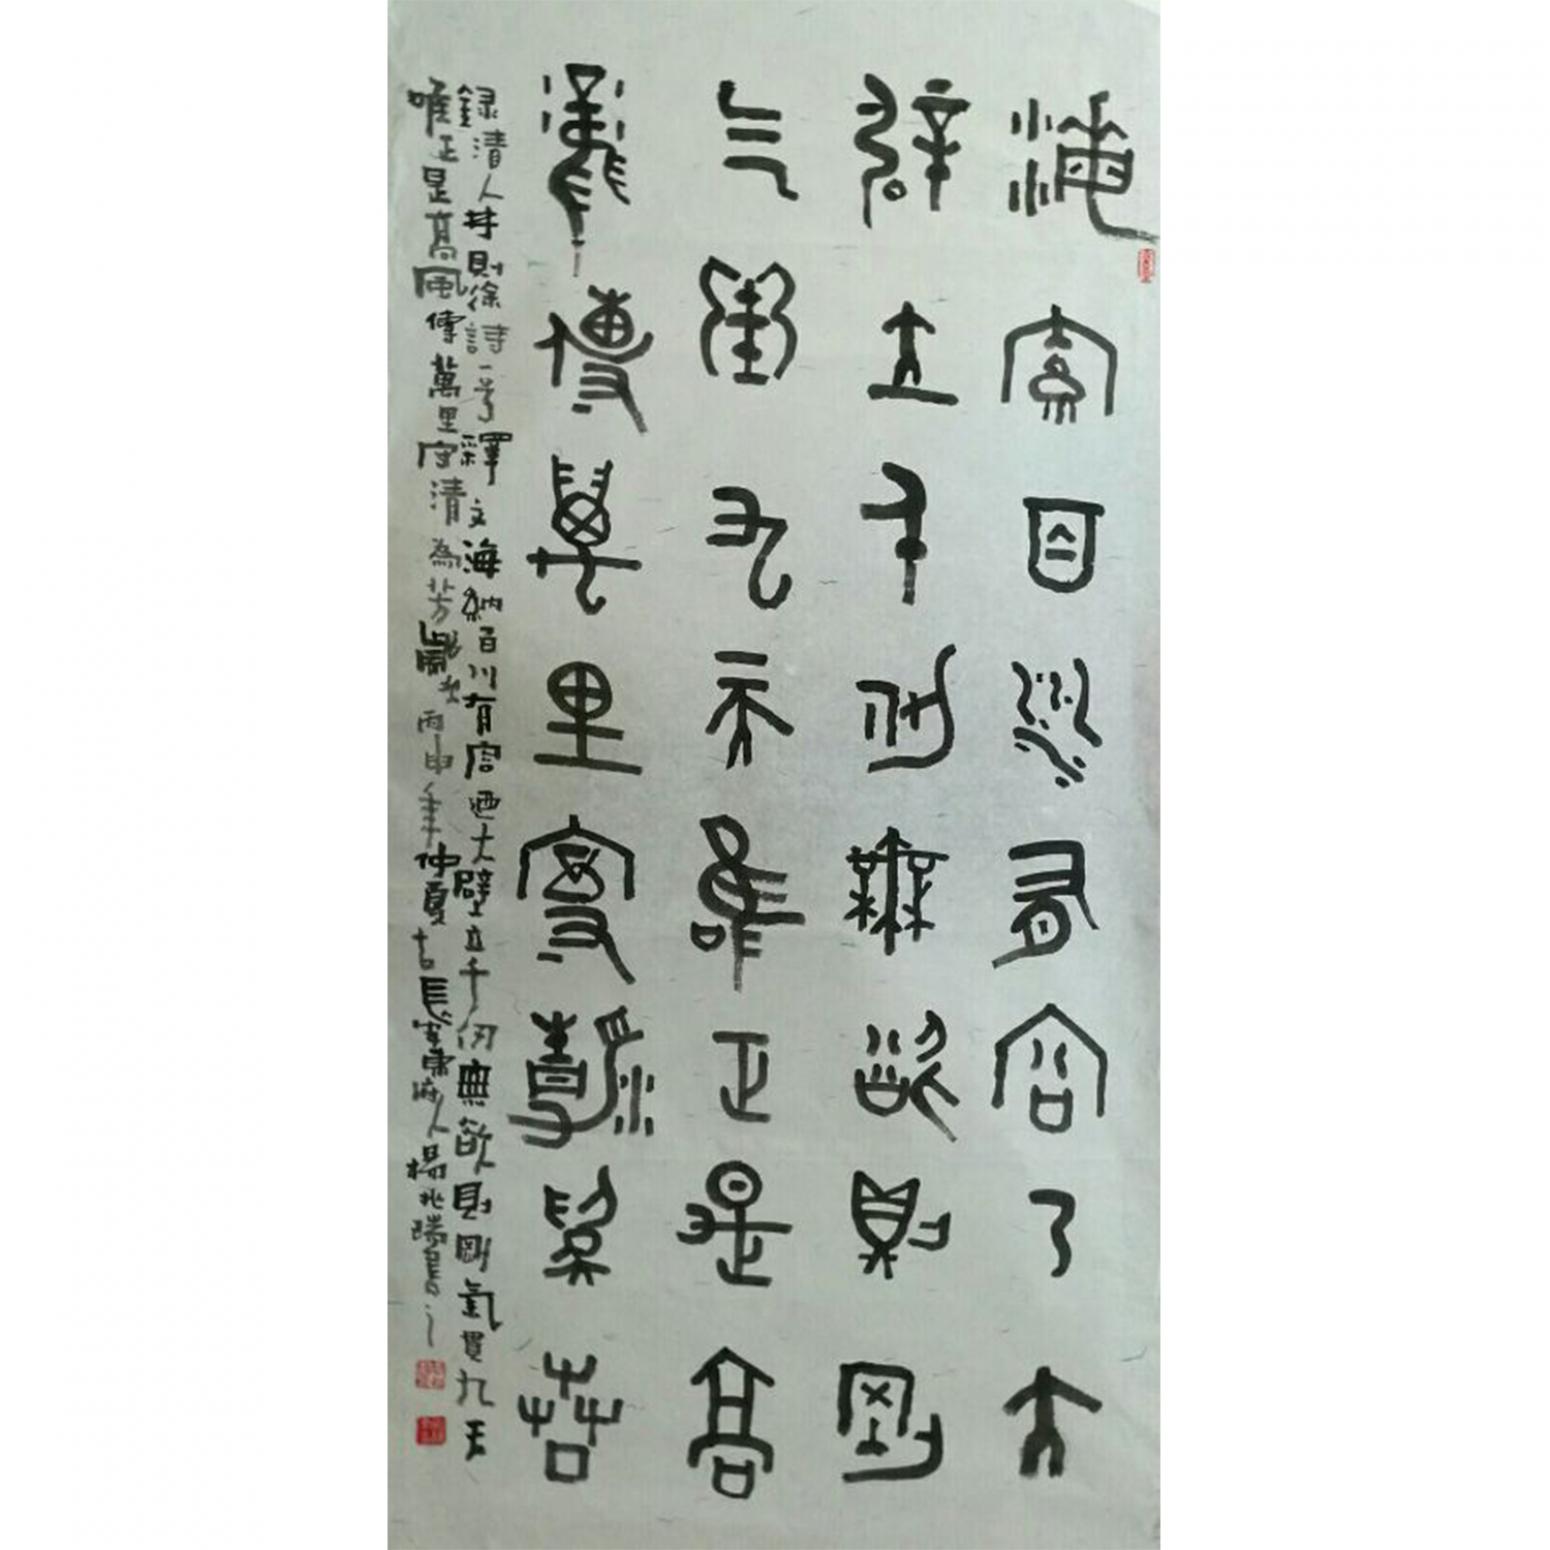 海納百川有容乃大
辟立千仞無欲則剛
气貫九天唯正是高
風傳萬里守清為芳
録清人林則徐詩一首釋文海納百川有容迺大壁立千仞無欲則剛氣貫九天
唯正是高風傳萬里守清為芳嵗在丙申年仲夏古長安府人楊兆瑞書之